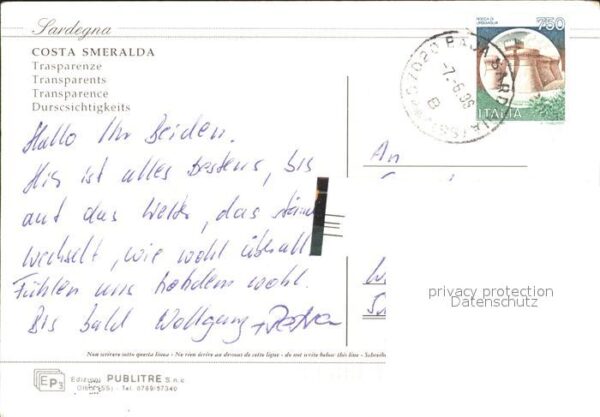 Sardegna
COSTA SMERALDA
Trasparenze
Transparents
Transparence
Durscsichtigkeits
Hallo Ihr Beiden.
Hier ist alles Bestens, bis
auf das Wetter, das
wechselt, wie wohl überall
Fühlen uns trotzdem wohl.
Bis bald Wolfgang + Petra
ROCCA DI URBISAGLIA
750
ITALIA
07020 BAJA SARDINIA
-7.-6.96
An
privacy protection
Datenschutz
Non scrivere sotto questa linea - Ne rien écrire au dessous de cette ligne - do not write below this line -
EP3
Edizioni PUBLITRE S.n.c.
Tel. 0789/57340